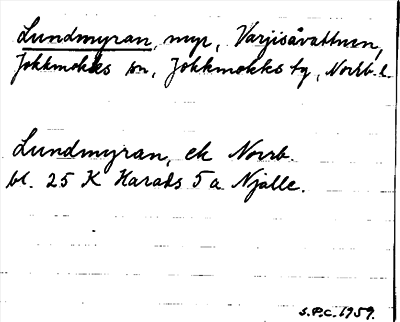 Lundmyran, myr, Varjisåvattnen,
Jokkmokks sn, Jokkmokks tg, Norrb. l.
Lundmyran, ek Norrb.
bl. 25 K Harads 5 a Njalle.
S.P.C. 1959.